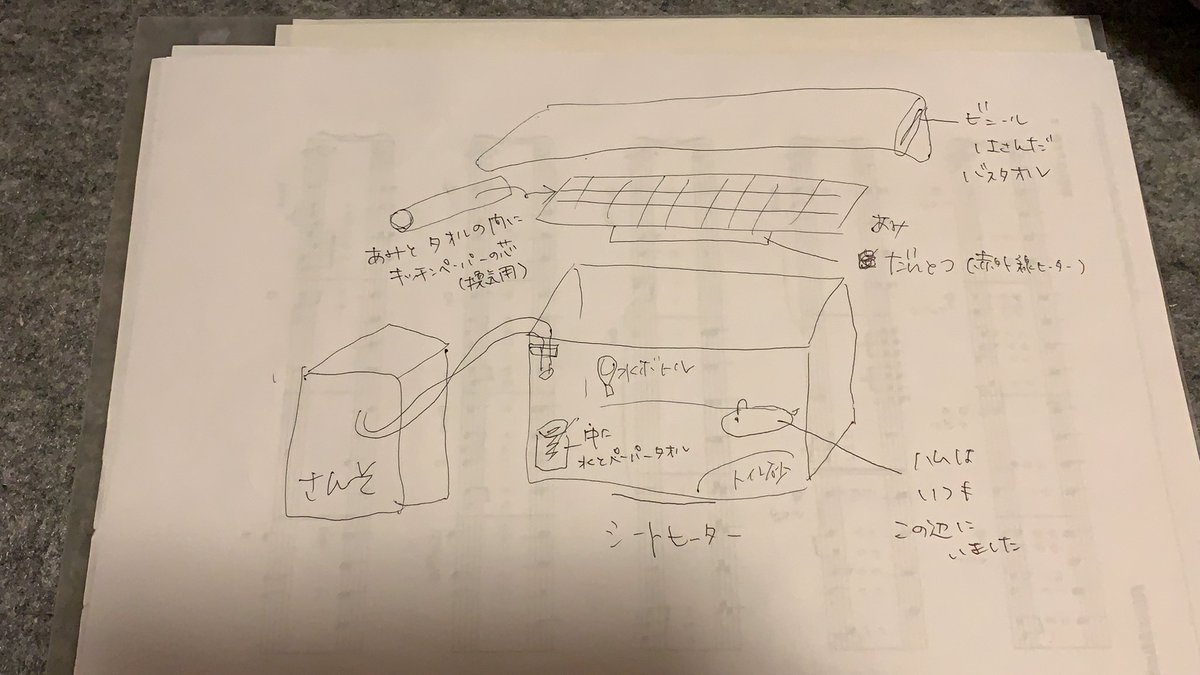 ビニール
はさんだ
バスタオル
あみ
だんとつ (赤外線ヒーター)
あみと タオルの間に
キッチンペーパーの芯
(換気用)
水ボトル
中に
水とペーパータオル
トイレ砂
さんそ
シートヒーター
ハムは
いつも
この辺に
いました